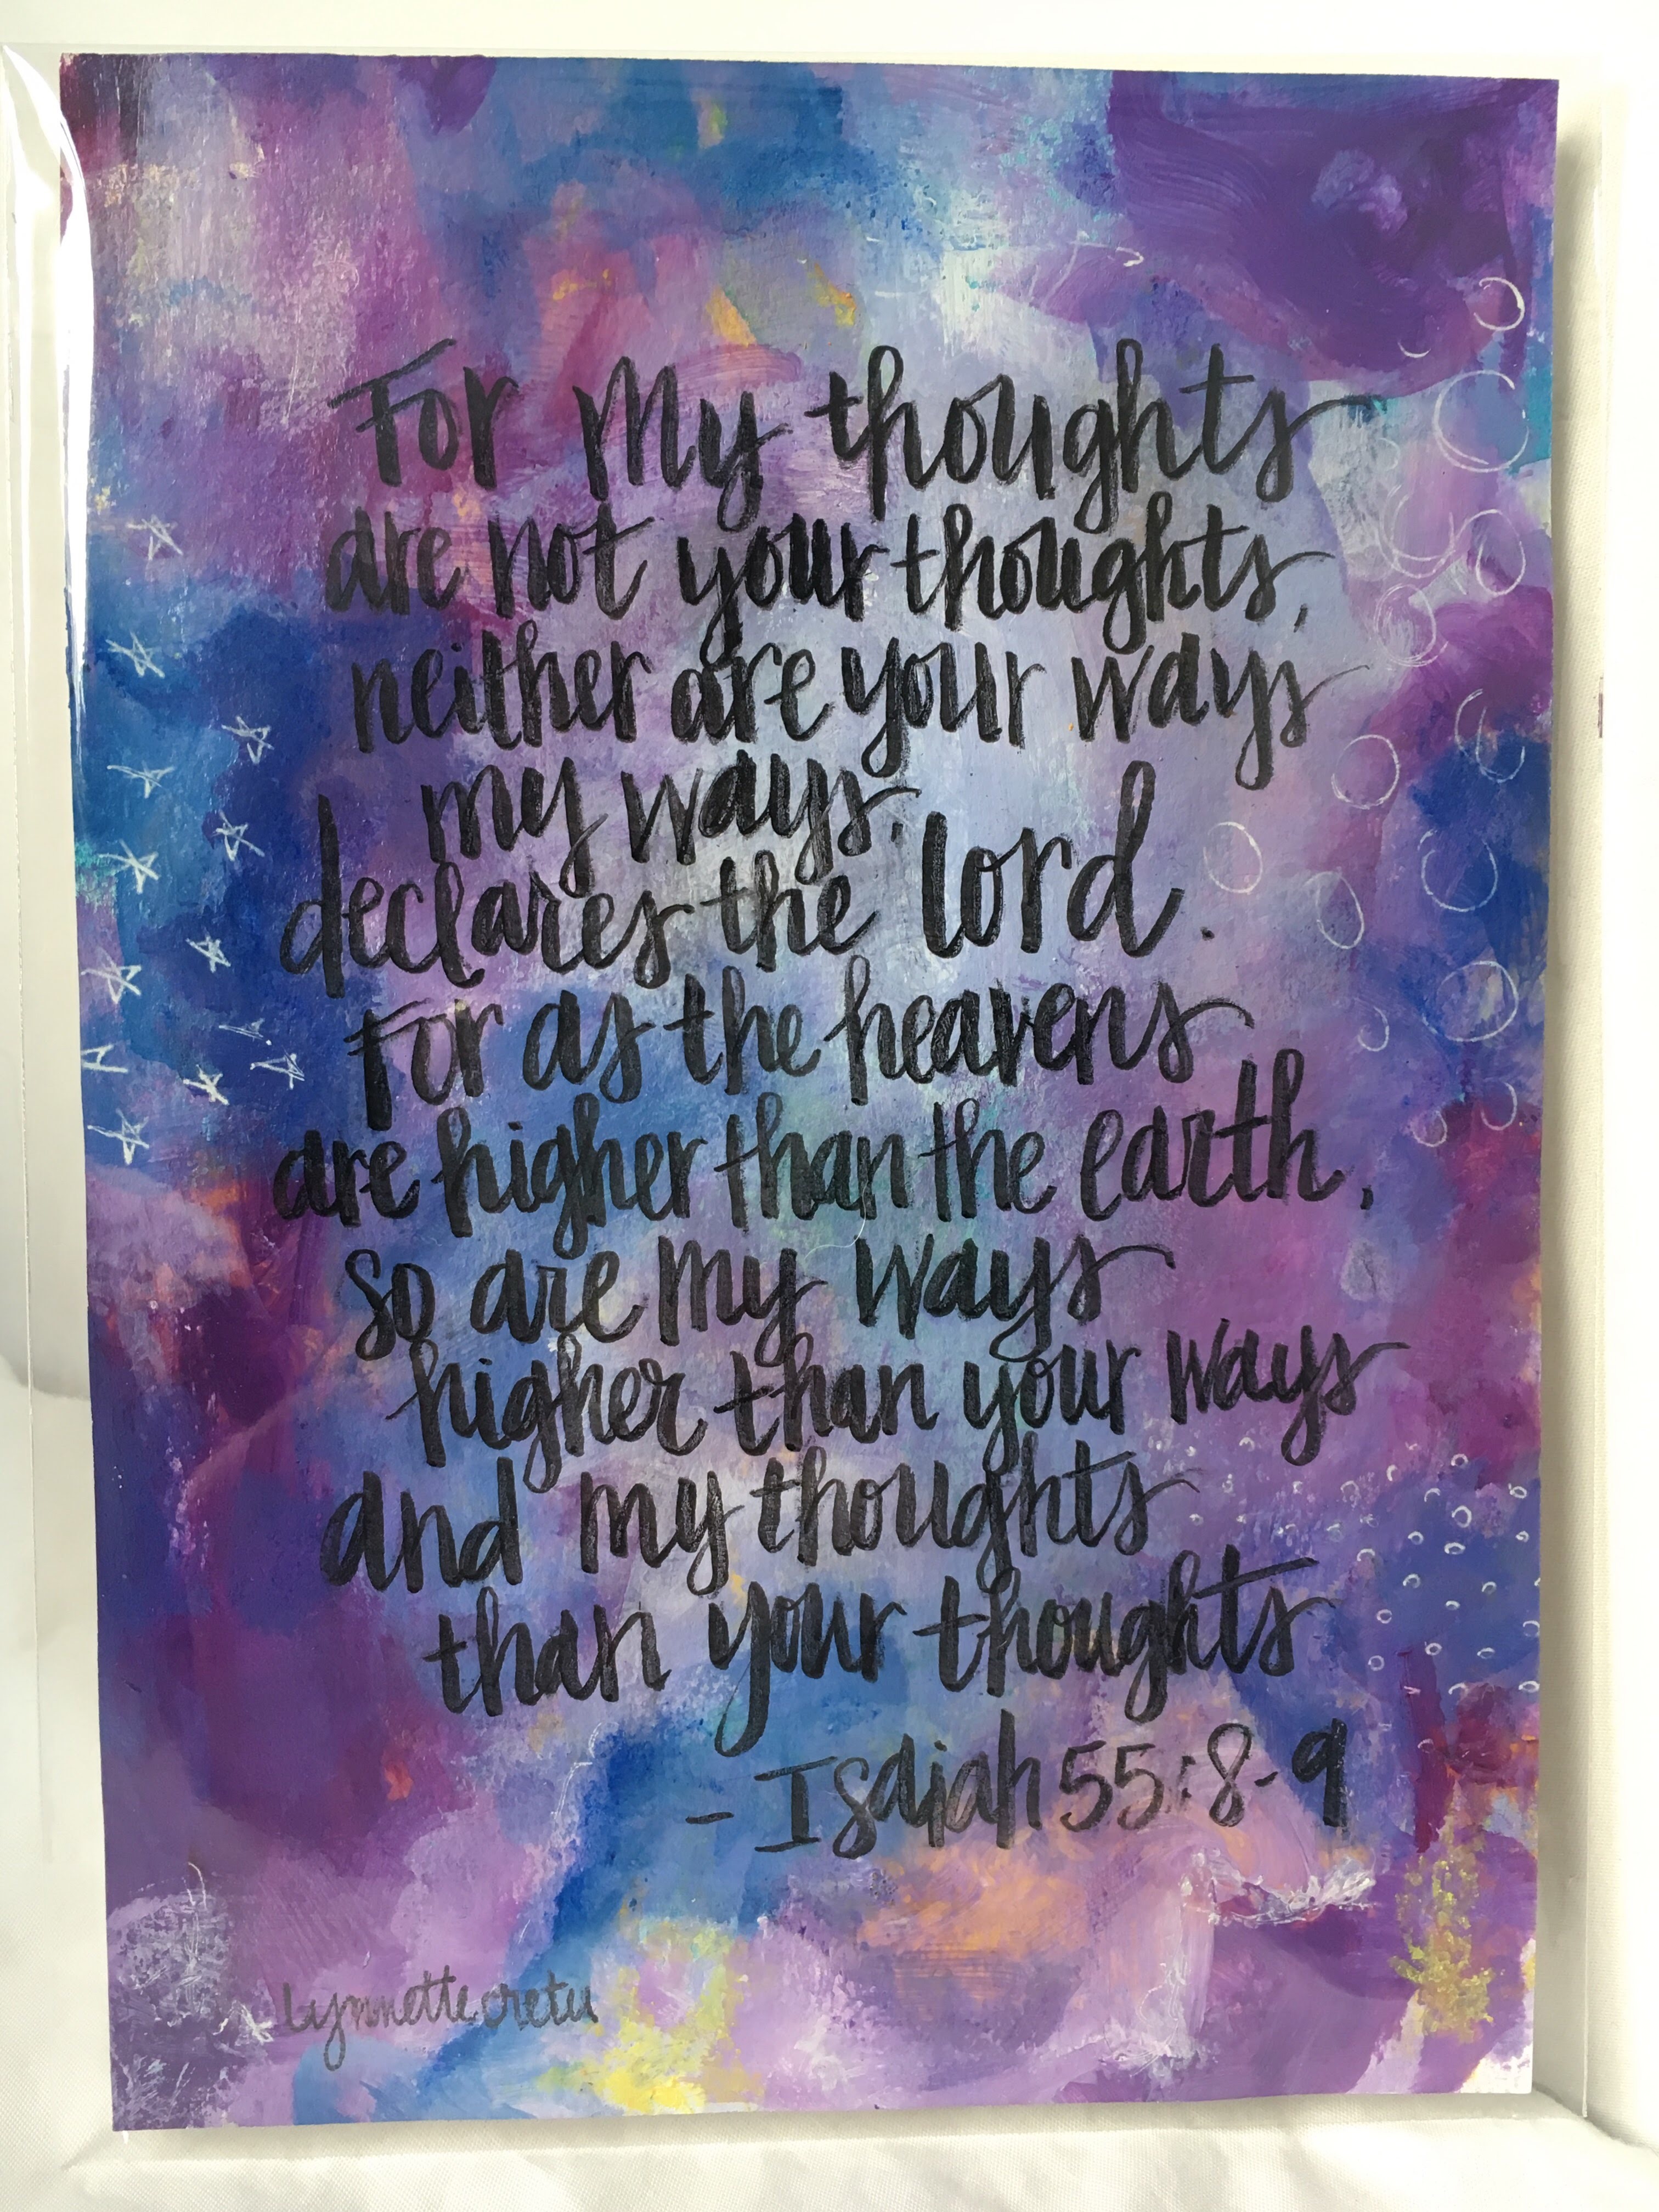 For My thoughts
are not your thoughts,
neither are your ways
my ways,
declares the Lord.
For as the heavens
are higher than the earth,
so are my ways
higher than your ways
and my thoughts
than your thoughts
- Isaiah 55:8-9
Lynnette cretu